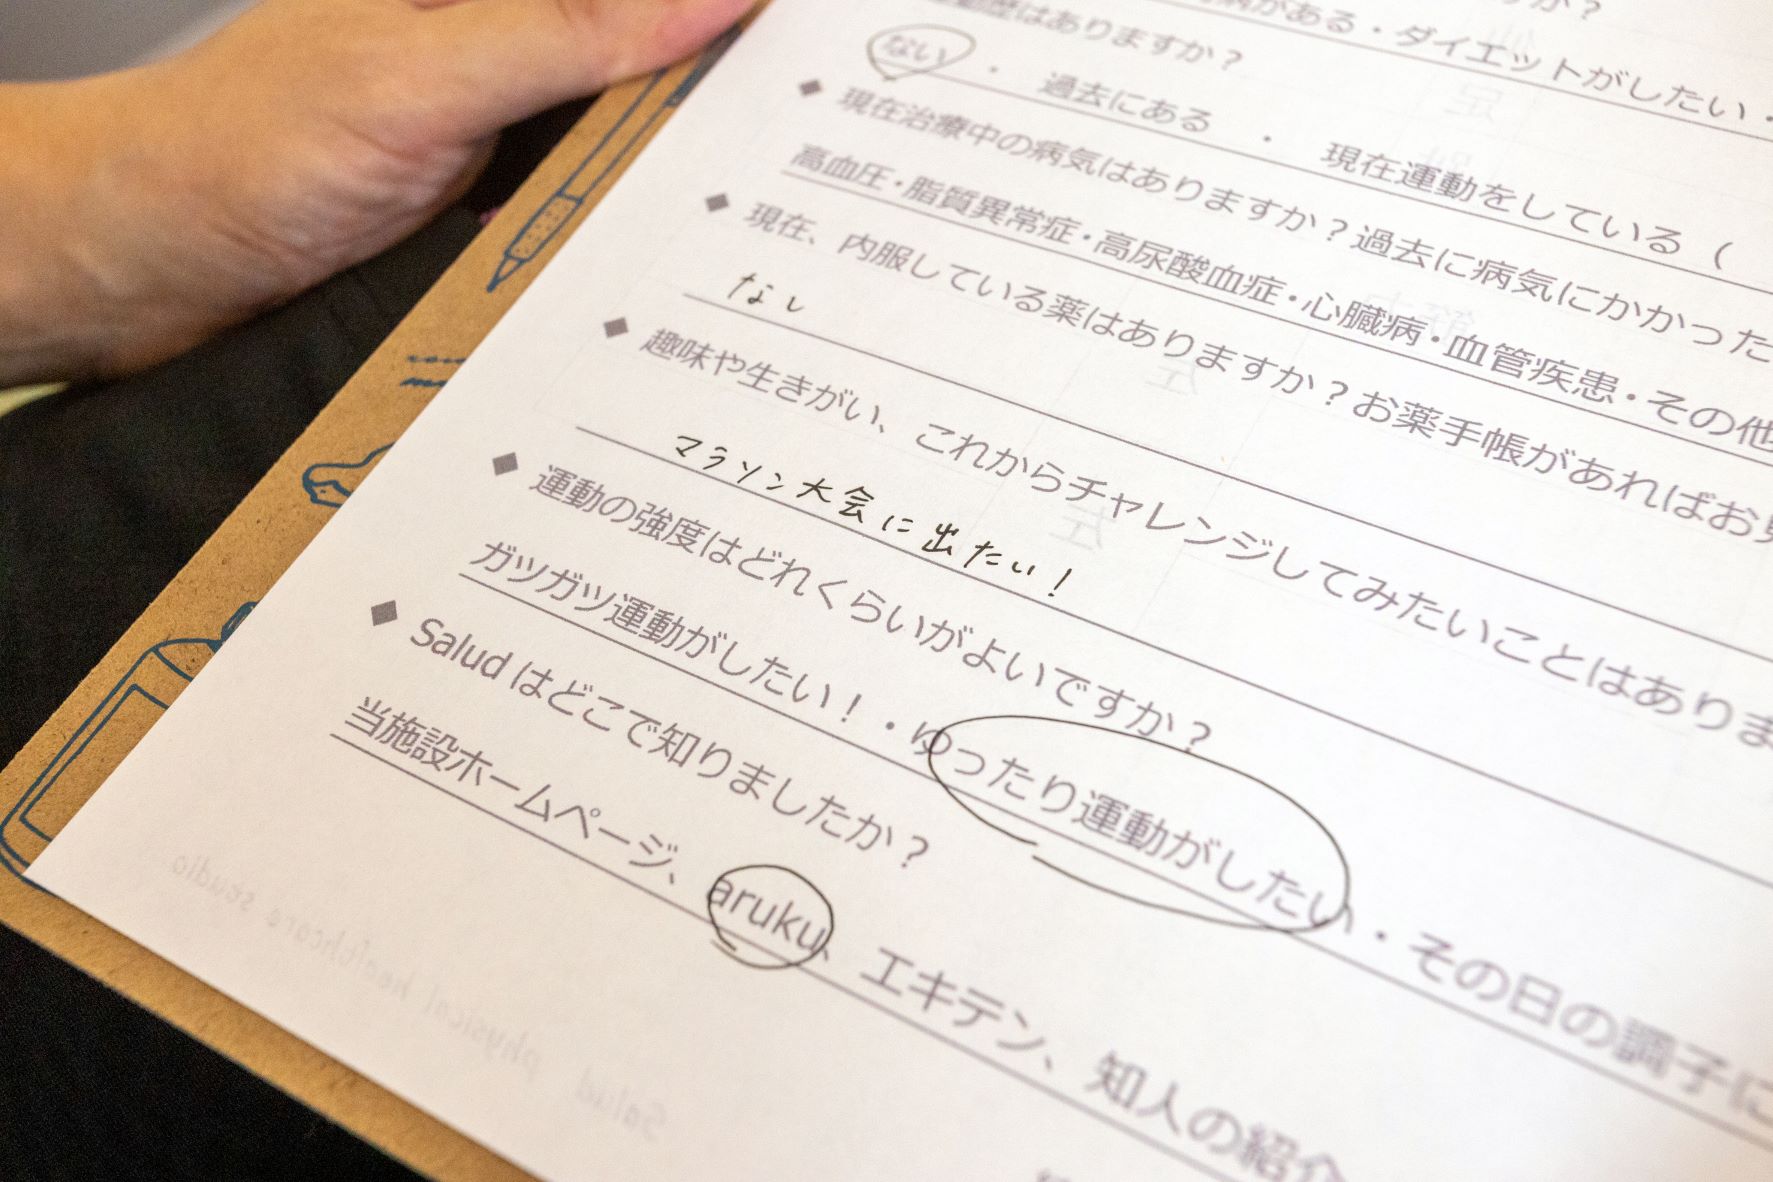 すか？
がある・ダイエットがしたい・
はありますか？
ない ・ 過去にある ・ 現在運動をしている（
◆ 現在治療中の病気はありますか？過去に病気にかかった
高血圧・脂質異常症・高尿酸血症・心臓病・血管疾患・その他
◆ 現在、内服している薬はありますか？お薬手帳があればお見
なし
◆ 趣味や生きがい、これからチャレンジしてみたいことはありま
マラソン大会に出たい！
◆ 運動の強度はどれくらいがよいですか？
ガツガツ運動がしたい！・ゆったり運動がしたい・その日の調子に
◆ Salud はどこで知りましたか？
当施設ホームページ、aruku、エキテン、知人の紹介
Salud physical healthcare studio